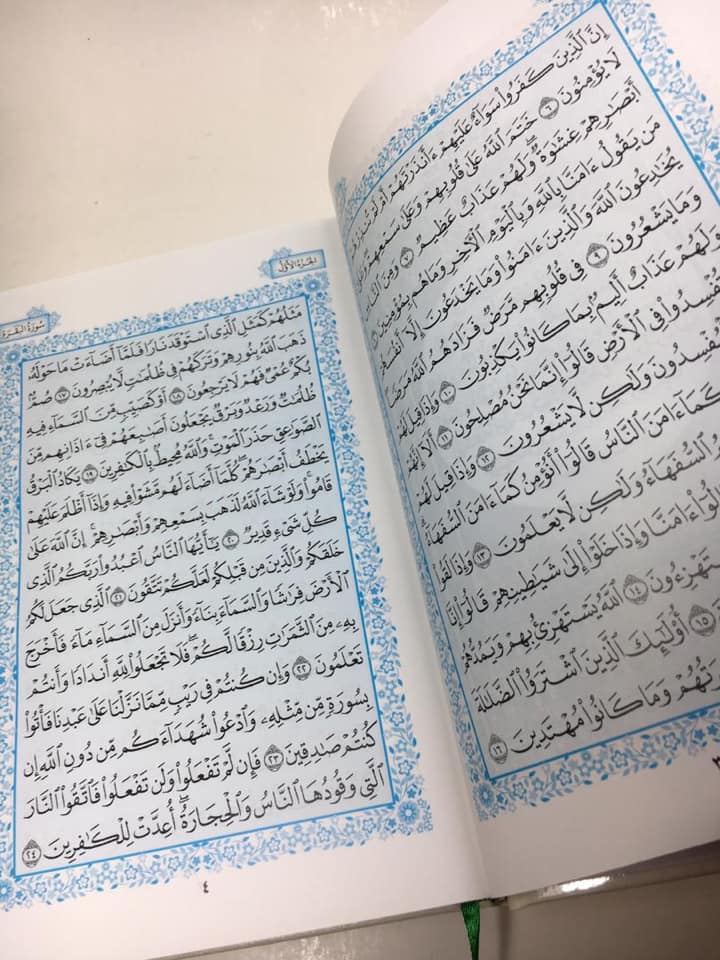 إِنَّ ٱلَّذِينَ كَفَرُوا۟ سَوَآءٌ عَلَيْهِمْ ءَأَنذَرْتَهُمْ أَمْ لَمْ
لَا يُؤْمِنُونَ ٦ خَتَمَ ٱللَّهُ عَلَىٰ قُلُوبِهِمْ وَعَلَىٰ سَمْعِهِمْ وَعَلَىٰٓ
أَبْصَٰرِهِمْ غِشَٰوَةٌ وَلَهُمْ عَذَابٌ عَظِيمٌ ٧ وَمِنَ ٱلنَّاسِ
مَن يَقُولُ ءَامَنَّا بِٱللَّهِ وَبِٱلْيَوْمِ ٱلْأَخِرِ وَمَا هُم بِمُؤْمِنِينَ ٨
يُخَٰدِعُونَ ٱللَّهَ وَٱلَّذِينَ ءَامَنُوا۟ وَمَا يَخْدَعُونَ إِلَّآ أَنفُسَهُمْ
وَمَا يَشْعُرُونَ ٩ فِى قُلُوبِهِم مَّرَضٌ فَزَادَهُمُ ٱللَّهُ مَرَضًا
وَلَهُمْ عَذَابٌ أَلِيمٌۢ بِمَا كَانُوا۟ يَكْذِبُونَ ١٠ وَإِذَا قِيلَ لَهُمْ
فْسِدُوا۟ فِى ٱلْأَرْضِ قَالُوٓا۟ إِنَّمَا نَحْنُ مُصْلِحُونَ ١١ أَلَآ إِنَّهُمْ
فْسِدُونَ وَلَٰكِن لَّا يَشْعُرُونَ ١٢ وَإِذَا قِيلَ لَهُمْ
كَمَآ ءَامَنَ ٱلنَّاسُ قَالُوٓا۟ أَنُؤْمِنُ كَمَآ ءَامَنَ ٱلسُّفَهَآءُ
ٱلسُّفَهَآءُ وَلَٰكِن لَّا يَعْلَمُونَ ١٣ وَإِذَا لَقُوا۟
وٓا۟ ءَامَنَّا وَإِذَا خَلَوْا۟ إِلَىٰ شَيَٰطِينِهِمْ قَالُوٓا۟ إِنَّا
تَهْزِءُونَ ١٤ ٱللَّهُ يَسْتَهْزِئُ بِهِمْ وَيَمُدُّهُمْ
١٥ أُو۟لَٰٓئِكَ ٱلَّذِينَ ٱشْتَرَوُا۟ ٱلضَّلَٰلَةَ
رَتُهُمْ وَمَا كَانُوا۟ مُهْتَدِينَ ١٦
٣
الجُزْءُ الأَوَّلُ
سُورَةُ البَقَرَةِ
مَثَلُهُمْ كَمَثَلِ ٱلَّذِى ٱسْتَوْقَدَ نَارًا فَلَمَّآ أَضَآءَتْ مَا حَوْلَهُۥ
ذَهَبَ ٱللَّهُ بِنُورِهِمْ وَتَرَكَهُمْ فِى ظُلُمَٰتٍ لَّا يُبْصِرُونَ ١٧ صُمٌّۢ
بُكْمٌ عُمْىٌ فَهُمْ لَا يَرْجِعُونَ ١٨ أَوْ كَصَيِّبٍ مِّنَ ٱلسَّمَآءِ فِيهِ
ظُلُمَٰتٌ وَرَعْدٌ وَبَرْقٌ يَجْعَلُونَ أَصَٰبِعَهُمْ فِىٓ ءَاذَانِهِم مِّنَ
ٱلصَّوَٰعِقِ حَذَرَ ٱلْمَوْتِ وَٱللَّهُ مُحِيطٌۢ بِٱلْكَٰفِرِينَ ١٩ يَكَادُ ٱلْبَرْقُ
يَخْطَفُ أَبْصَٰرَهُمْ كُلَّمَآ أَضَآءَ لَهُم مَّشَوْا۟ فِيهِ وَإِذَآ أَظْلَمَ عَلَيْهِمْ
قَامُوا۟ وَلَوْ شَآءَ ٱللَّهُ لَذَهَبَ بِسَمْعِهِمْ وَأَبْصَٰرِهِمْ إِنَّ ٱللَّهَ عَلَىٰ
كُلِّ شَىْءٍ قَدِيرٌ ٢٠ يَٰٓأَيُّهَا ٱلنَّاسُ ٱعْبُدُوا۟ رَبَّكُمُ ٱلَّذِى
خَلَقَكُمْ وَٱلَّذِينَ مِن قَبْلِكُمْ لَعَلَّكُمْ تَتَّقُونَ ٢١ ٱلَّذِى جَعَلَ لَكُمُ
ٱلْأَرْضَ فِرَٰشًا وَٱلسَّمَآءَ بِنَآءً وَأَنزَلَ مِنَ ٱلسَّمَآءِ مَآءً فَأَخْرَجَ
بِهِۦ مِنَ ٱلثَّمَرَٰتِ رِزْقًا لَّكُمْ فَلَا تَجْعَلُوا۟ لِلَّهِ أَندَادًا وَأَنتُمْ
تَعْلَمُونَ ٢٢ وَإِن كُنتُمْ فِى رَيْبٍ مِّمَّا نَزَّلْنَا عَلَىٰ عَبْدِنَا فَأْتُوا۟
بِسُورَةٍ مِّن مِّثْلِهِۦ وَٱدْعُوا۟ شُهَدَآءَكُم مِّن دُونِ ٱللَّهِ إِن
كُنتُمْ صَٰدِقِينَ ٢٣ فَإِن لَّمْ تَفْعَلُوا۟ وَلَن تَفْعَلُوا۟ فَٱتَّقُوا۟ ٱلنَّارَ
ٱلَّتِى وَقُودُهَا ٱلنَّاسُ وَٱلْحِجَارَةُ أُعِدَّتْ لِلْكَٰفِرِينَ ٢٤
٤